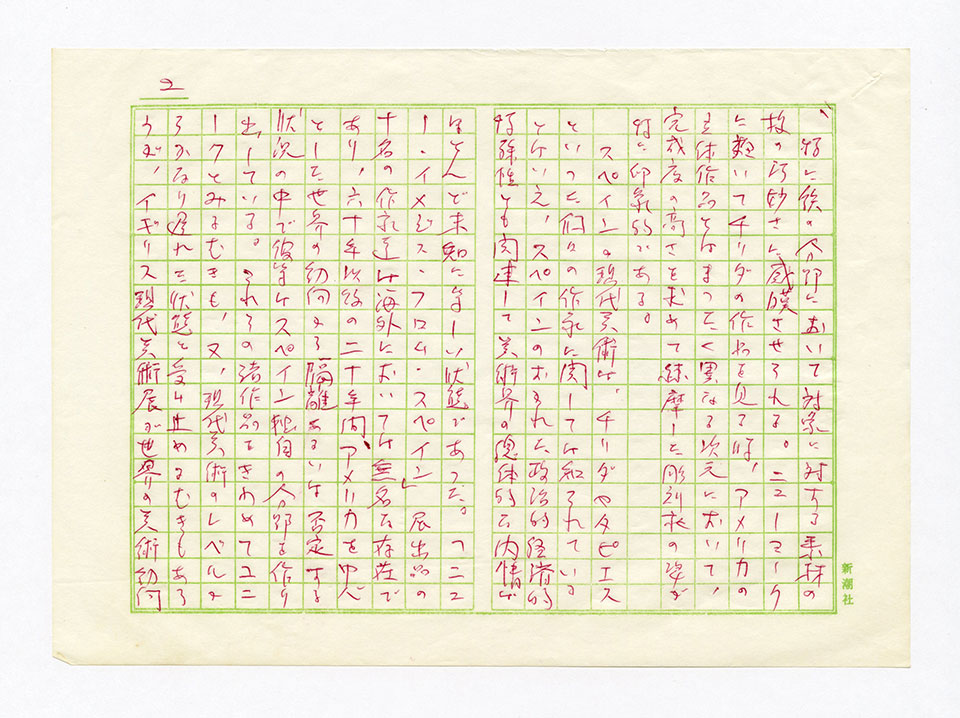 2
、特に鉄の分野において対象に対する素材の
扱の巧妙さに感嘆させられる。ニューヨーク
に趣いてチリダの作品を見る時、アメリカの
立体作品とはまったく異なる次元において、
完成度の高さを求めて練摩した彫刻根の姿が
特に印象的である。
スペインの現代美術は、チリダやタピエス
といった個々の作家に関しては知られている
とはいえ、スペインのおかれた政治的経済的
特殊性とも関連して美術界の総体的な内情が
ほとんど未知に等しい状態であった。「ニュ
ー・イメジス・フロム・スペイン」展出品の
十名の作家達は海外においては無名な存在で
あり、六十年以後の二十年間、アメリカを中心
とした世界の動向よる隔離あるいは否定する
状況の中で彼等はスペイン独自の分野を作り
出している。それらの諸作品をきわめてユニ
ークとみるむきも、又、現代美術のレベルよ
りかなり遅れた状態と受け止めるむきもあろ
うが、イギリス現代美術展が世界の美術動向
新潮社